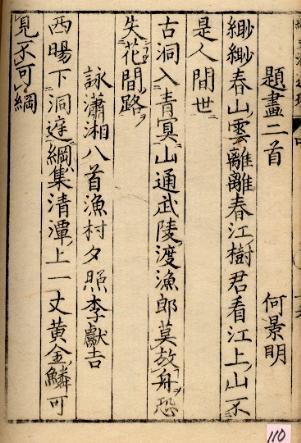 題畫二首　何景明
緲緲春山雲離離春江樹君看江上山不
是人間世
古洞入青冥山通武陵渡漁郎莫放舟恐
失花間路
詠瀟湘八首漁村夕照李獻吉
西暘下洞遳綱集清潭上一丈黄金鱗可
見不可綱
110